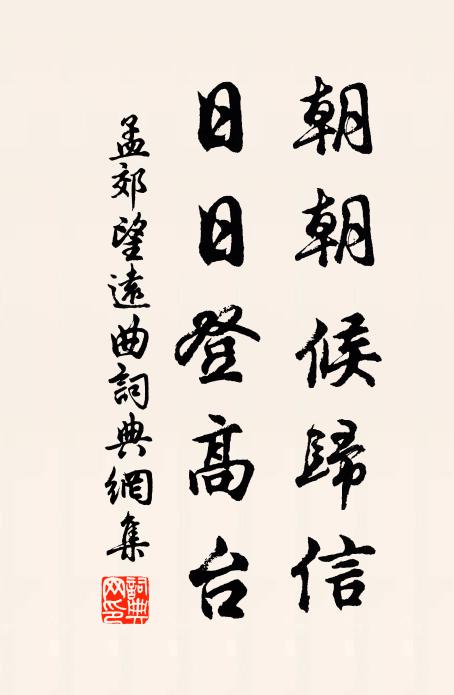 朝朝候歸信
日日登高台
孟郊望遠曲詞典網集
詞典網印